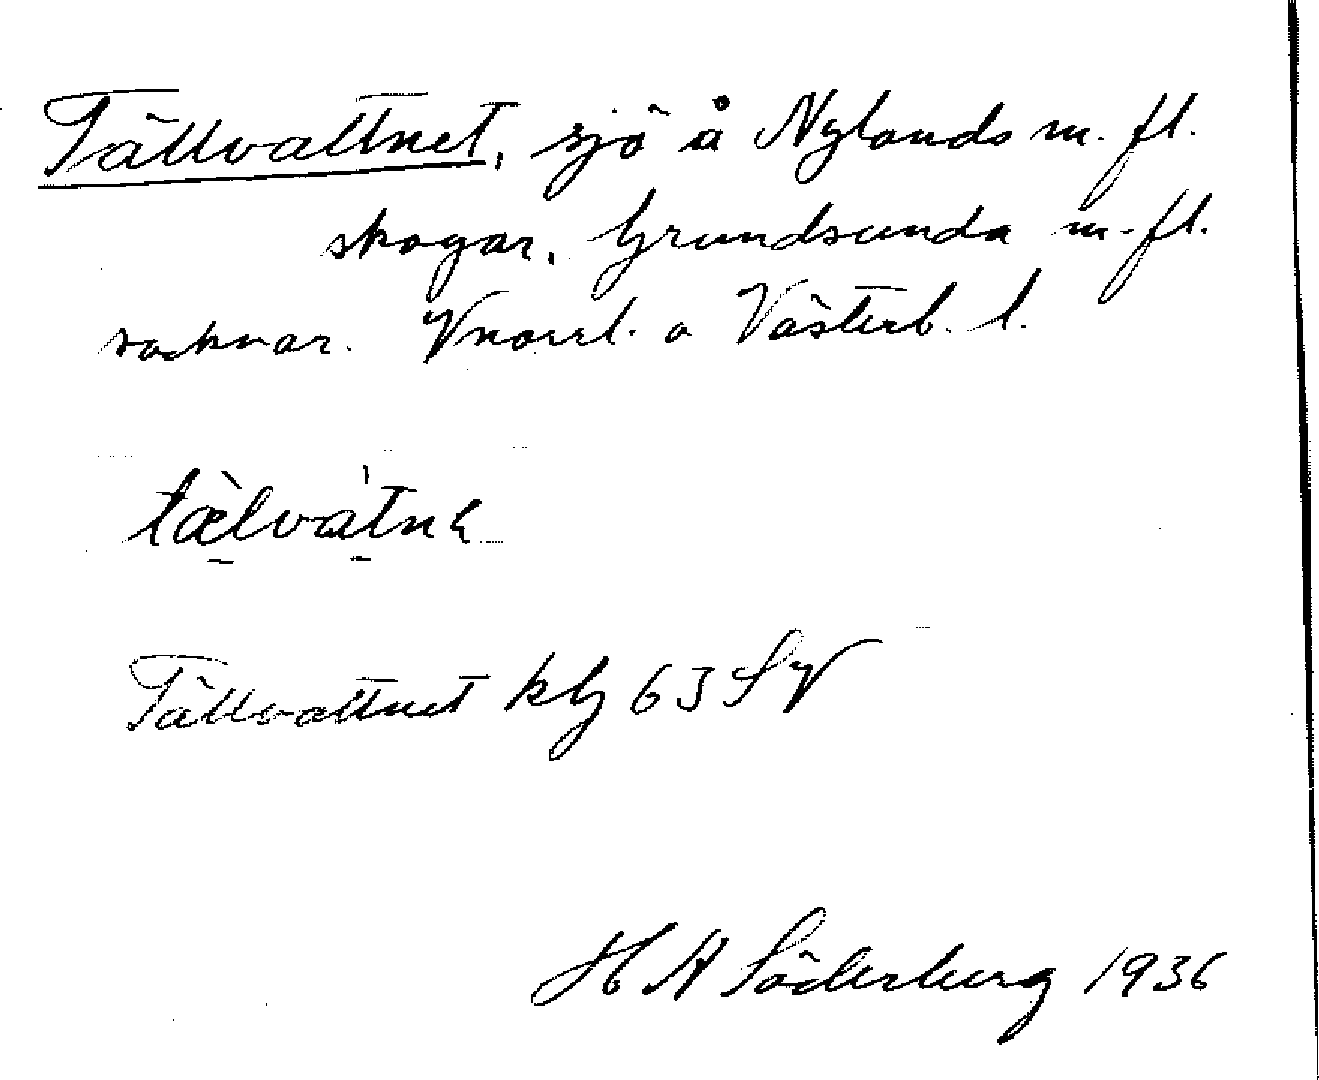 Tällvattnet, sjö å Nylands m. fl.
skogar, Grundsunda m. fl.
socknar. Vnorrl. o Västerb. l.
Tällvattnet kbg 63 SV
H A Söderberg 1936